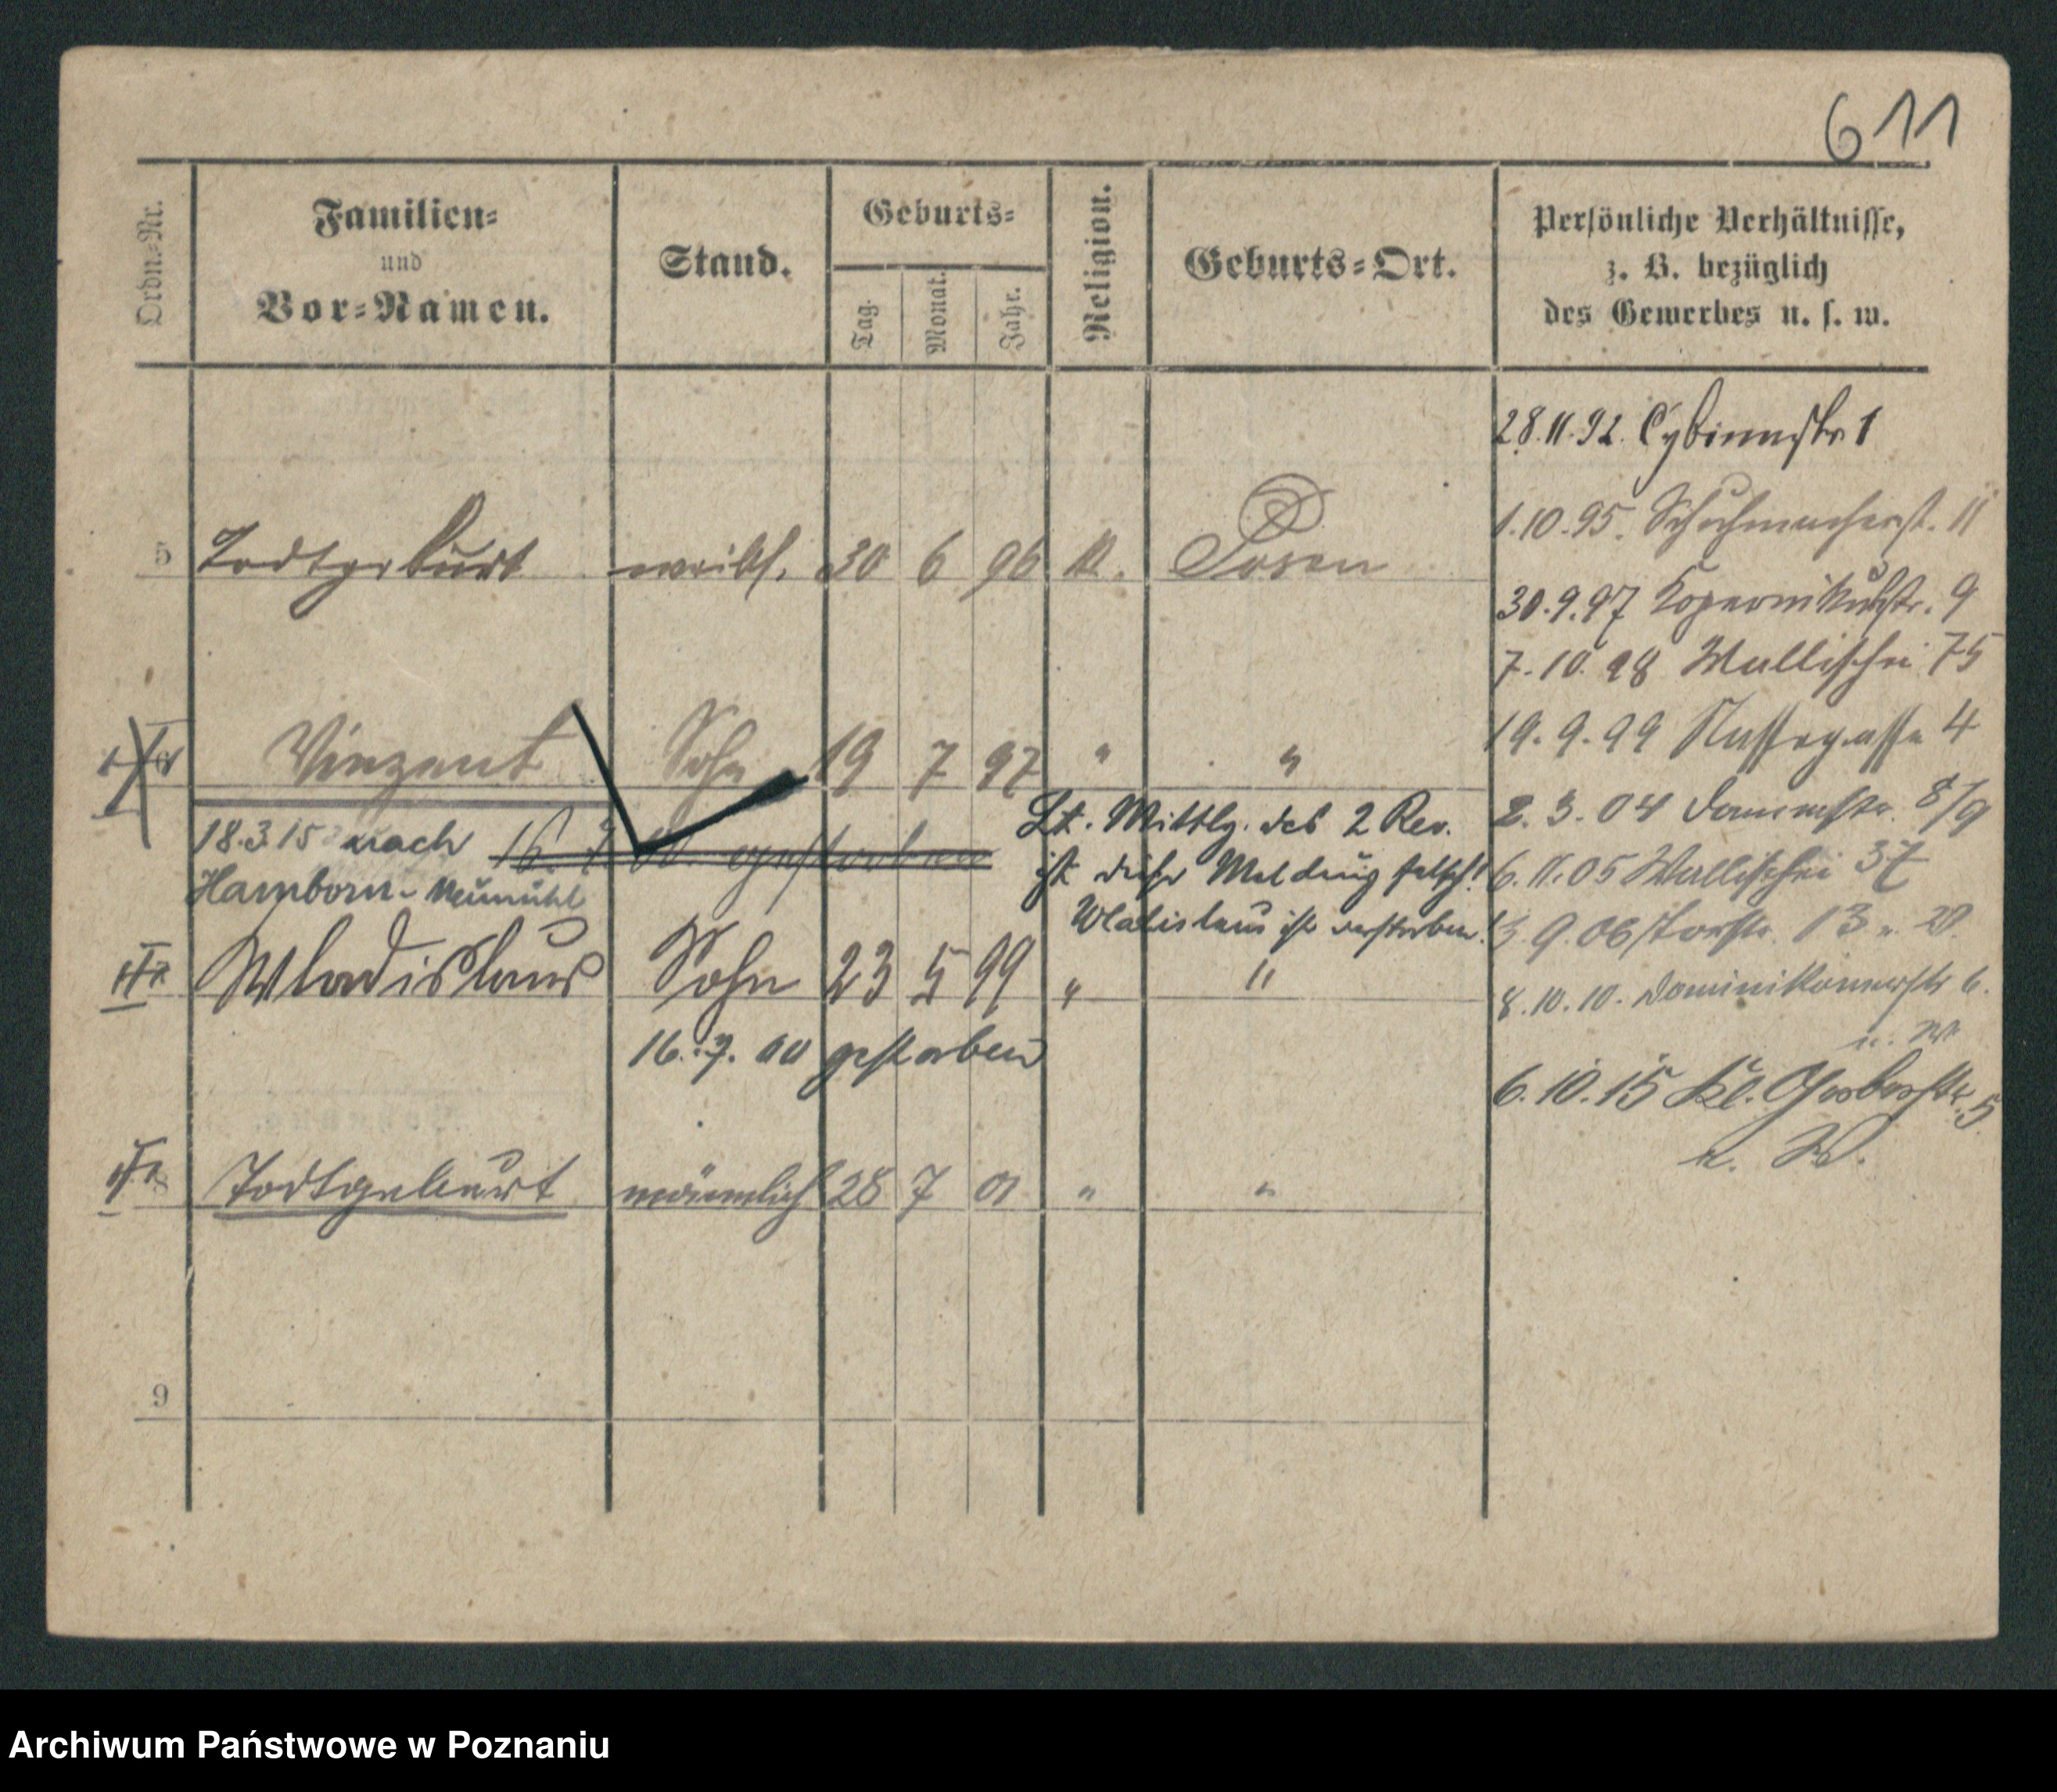 611
Ordn.-Nr.
Familien-
und
Vor-Namen.
Stand.
Geburts-
Tag.
Monat.
Jahr.
Religion.
Geburts-Ort.
Persönliche Verhältnisse,
z. B. bezüglich
des Gewerbes u. s. w.
28.11.92. Cybinastr 1
1.10.95. Schuhmacherst. 11
5 Todtgeburt weibl. 30 6 96 K. Posen
30.9.97 Kopernikusstr. 9
7.10.98 Wallischei 75
Vinzent Sohn 19 7 97 " "
19.9.99 Nassegasse 4
2.3.04 Dammstr. 8/9
18.3.15 nach 16. 7. 00. gestorben
Hamborn-Neumühl
Lt. Mittlg. des 2 Rev.
ist diese Meldung falsch!
Wladislaus ist verstorben.
6.11.05 Wallischei 37
3.9.06 Torstr. 13
Wladislaus Sohn 23 5 99 " "
8.10.10. Dominikanerstr 6.
16.7.00 gestorben
6.10.15 Kl. Gerberstr. 5
n. W.
Todtgeburt männlich 28 7 01 " "
9
Archiwum Państwowe w Poznaniu